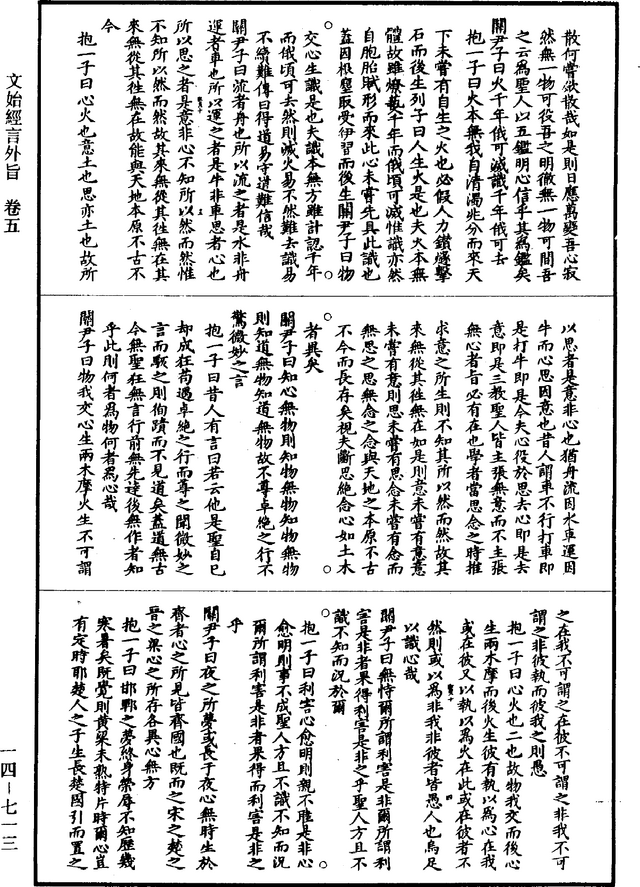 散何嘗欲散哉如是則日應萬變吾心寂
然無一物可役吾之明徹無一物可間吾
之云爲聖人以五鑑明心信乎其爲鑑矣
關尹子曰火千年俄可滅識千年俄可去
抱一子曰火本無我自清濁兆分而來天
下未嘗有自生之火也必假人力鑽燧擊
石而後生列子曰人生火是也夫火本無
體故雖燎爇千年而俄頃可滅惟識亦然
自胞胎賦形而來此心未嘗先具此識也
蓋因根塵取受伊習而後生關尹子曰物
交心生識是也夫識本無方雖計認千年
而俄頃可去然則滅火易不然難去識易
不續難傳曰得道易守道難信哉
關尹子曰流者舟也所以流之者是水非舟
運者車也所以運之者是牛非車思者心也
所以思之者是意非心不知所以然而然惟
不知所以然而然故其來無從其往無在其
來無從其往無在故能與天地本原不古不
今
抱一子曰心火也意土也思亦土也故所
以思者是意非心也猶舟流因水車運因
牛而心思因意也昔人謂車不行打車即
是打牛即是今夫心役於思去心即是去
意即是三教聖人皆主張無意而不主張
無心者旨必有在也學者當思念之時推
求意之所生則不知其所以然而然故其
來無從其往無在如是則意未嘗有意意
未嘗有意則思未嘗有思念未嘗有念而
無思之思無念之念與天地之本原不古
不今而長存矣視夫斷思絕念心如土木
者異矣
關尹子曰知心無物則知物無物知物無物
則知道無物知道無物故不尊卓絕之行不
驚微妙之言
抱一子曰昔人有言曰若云他是聖自已
却成狂苟遇卓絕之行而尊之聞微妙之
言而驚之則徇蹟而不見道矣蓋道無古
今無聖狂無言行前無先達後無作者知
乎此則何者爲物何者爲心哉
關尹子曰物我交心生兩木摩火生不可謂
之在我不可謂之在彼不可謂之非我不可
謂之非彼執而彼我之則愚
抱一子曰心火也二也故物我交而後心
生兩木摩而後火生彼有執以爲心在我
或在彼又以執以爲火在此或在彼者不
然則或以爲非我非彼者皆愚人也烏足
以識心哉
關尹子曰無恃爾所謂利害是非爾所謂利
害是非者果得利害是非之乎聖人方且不
識不知而況於爾
抱一子曰利害心愈明則親不睦是非心
愈明則事不成聖人方且不識不知而況
爾所謂利害是非者果得而利害是非之
乎
關尹子曰夜之所夢或長于夜心無時生於
齊者心之所見皆齊國也既而之宋之楚之
晉之梁心之所存各異心無方
抱一子曰邯鄲之夢終身榮辱不知歷幾
寒暑矣既覺則黃粱未熟特片時爾心豈
有定時耶楚人之子生長楚國引而置之
文始經言外旨 卷五
一四—七一三